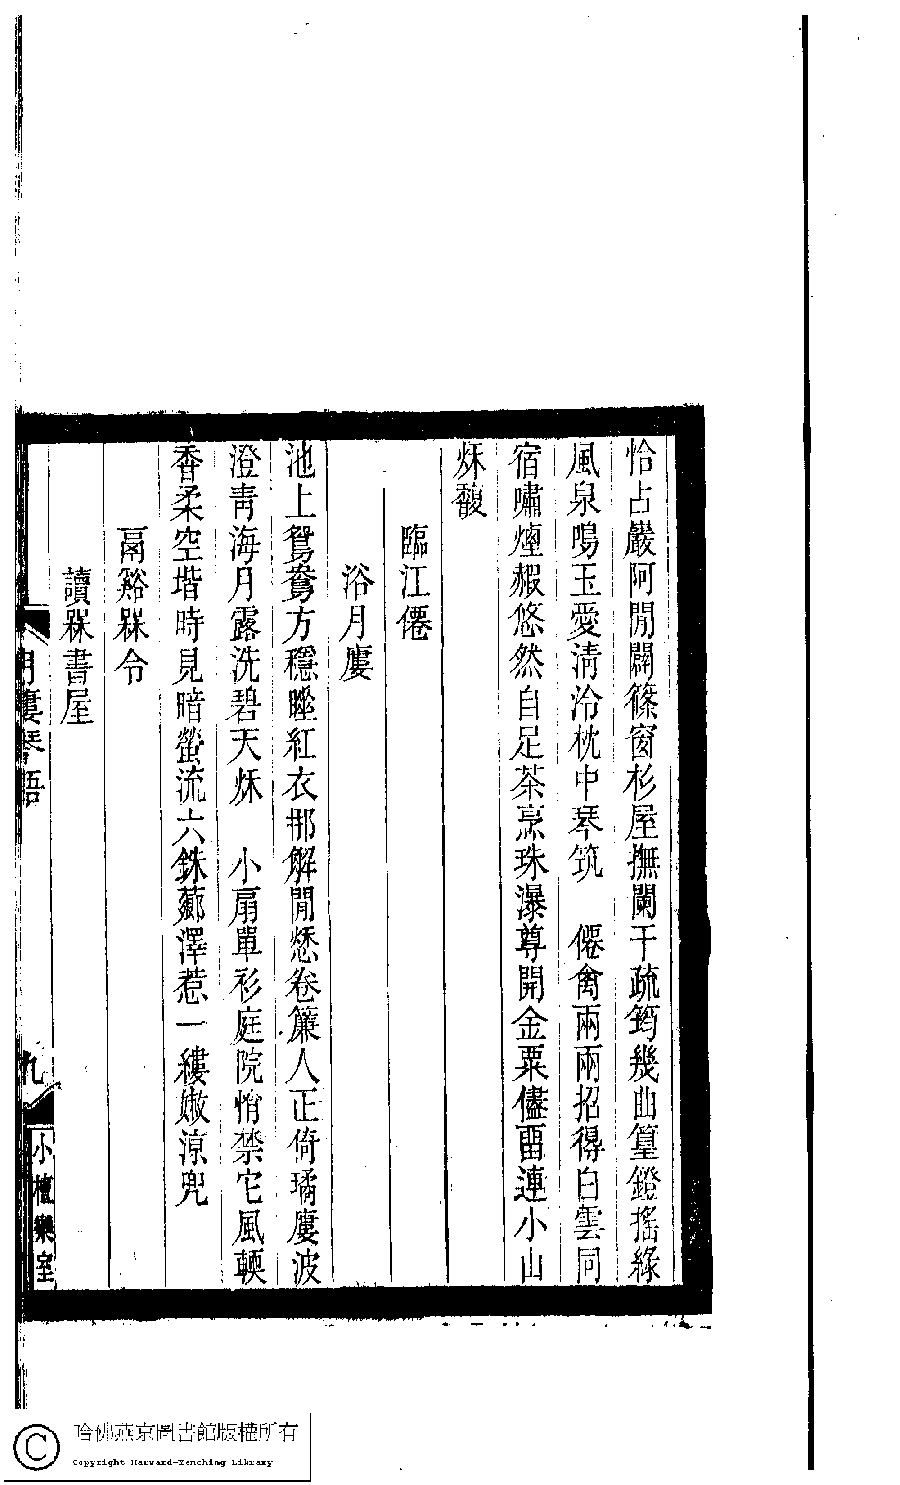 恰占巖阿閒闢篠窗杉屋撫闌干疏筠幾曲篁鐙搖綠
風泉鳴玉愛淸泠枕中琴筑　僊禽兩兩招得白雲同
宿嘯煙赮悠然自足茶烹珠瀑尊開金粟儘畱連小山
秌馥
臨江僊
浴月廔
池上鴛鴦方穩睡紅衣那解閒愁卷簾人正倚璚廔波
澄靑海月露洗碧天秌　小扇單衫庭院悄禁它風輭
香柔空堦時見暗螢流六銖薌澤惹一縷嫩涼兜
鬲谿槑令
讀槑書屋
月廔琴語
九
小檀欒室
哈佛燕京圖書館版權所有
Copyright Harvard-Yenching Library